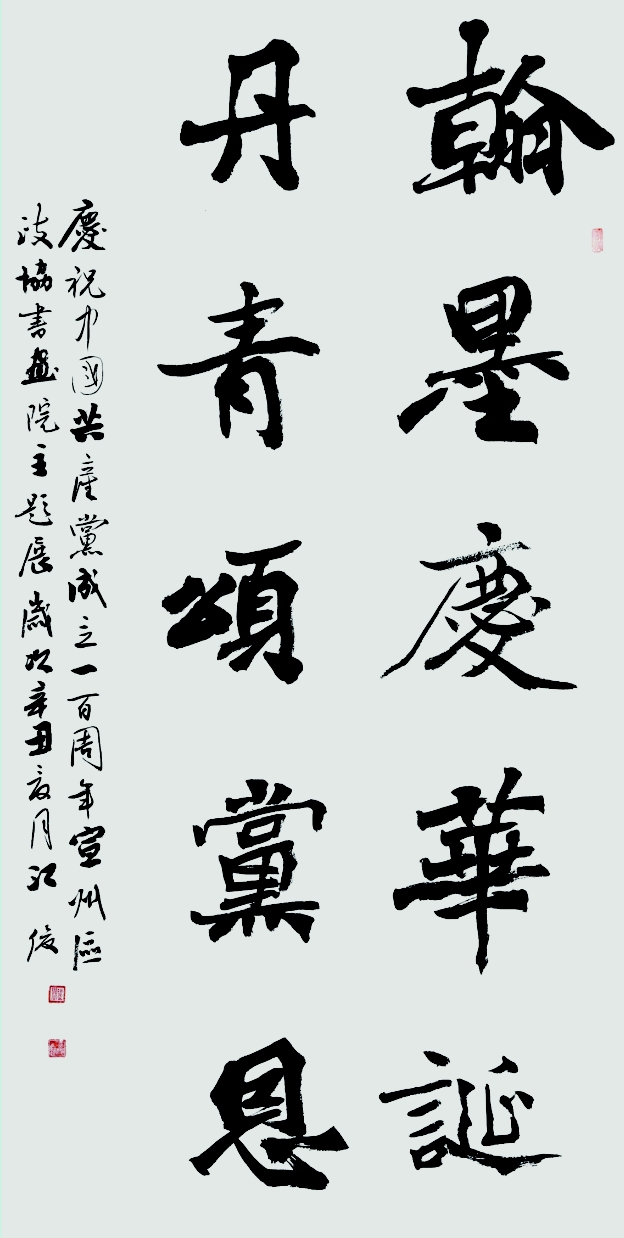 翰墨慶華誕
丹青頌黨恩
慶祝中國共產黨成立一百周年宣州區
政協書畫院主題展歲次辛丑夏月江俊